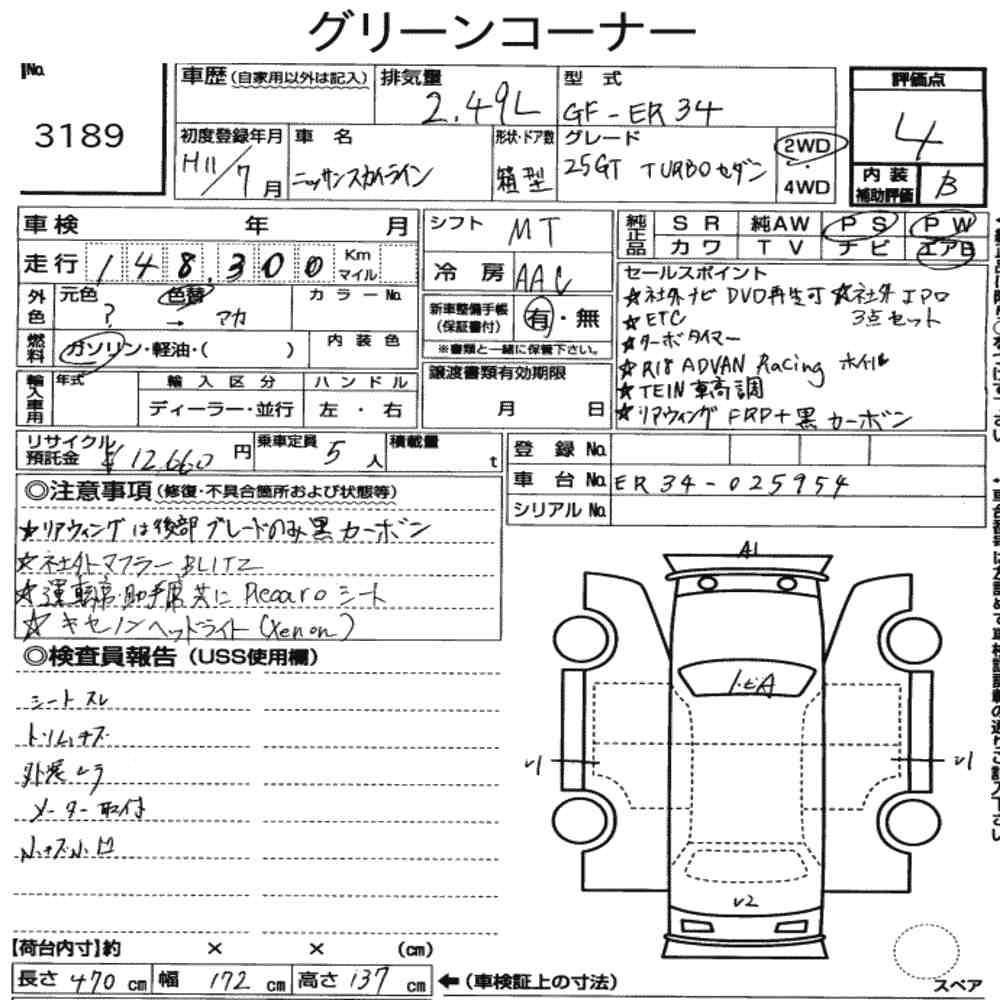 グリーンコーナー
No.
3189
車歴 (自家用以外は記入)
排気量 2.49L
型 式 GF-ER34
初度登録年月 H11/7月
車 名 ニッサンスカイライン
形状・ドア数 箱型
グレード 25GT TURBOセダン
2WD
4WD
評価点
4
内装補助評価 B
車検 年 月
走行 148,300 Km マイル
外色 元色 ? → 色替 マカ
カラーNo.
燃料 ガソリン・軽油・( )
内装色
輸入車用 年式 輸入区分 ハンドル
ディーラー・並行 左・右
シフト MT
冷房 AAC
新車整備手帳(保証書付) 有・無
※書類と一緒に保管下さい。
譲渡書類有効期限
月 日
純正品 SR 純AW PS PW
カワ TV ナビ エアB
セールスポイント
☆社外ナビ DVD再生可 ☆社外エアロ
3点セット
☆ETC
☆ターボタイマー
☆R18 ADVAN Racing ホイル
☆TEIN 車高調
☆リアウィング FRP+黒カーボン
リサイクル預託金 ¥12,660円
乗車定員 5人
積載量 t
登録No.
車台No. ER34-025954
シリアルNo.
◎注意事項(修復・不具合箇所および状態等)
☆リアウィングは後部ブレードのみ黒カーボン
☆社外マフラーBLITZ
☆運転席・助手席共にRecaroシート
☆キセノンヘッドライト(Xenon)
◎検査員報告(USS使用欄)
シートスレ
トリムキズ
外装ムラ
メーター取付
小キズ小凹
A1
U1
U1
U2
【荷台内寸】約 × × (cm)
長さ 470 cm 幅 172 cm 高さ 137 cm
←(車検証上の寸法)
スペア